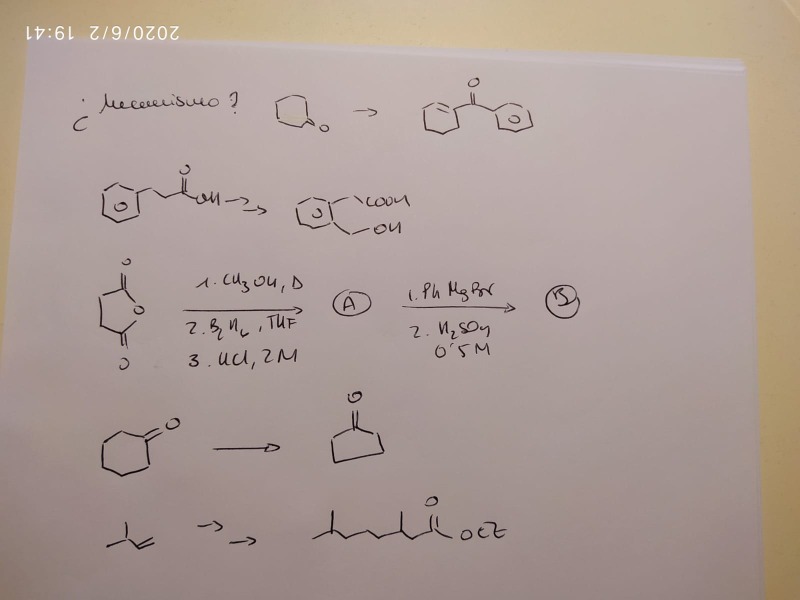 2020/6/2 19:41
¿Mecanismo?
O
O
O
O
OH
COOH
OH
O
O
O
1. CH3OH, Δ
2. B2H6, THF
3. HCl, 2M
A
1. PhMgBr
2. H2SO4
0'5M
B
O
O
O
OEt